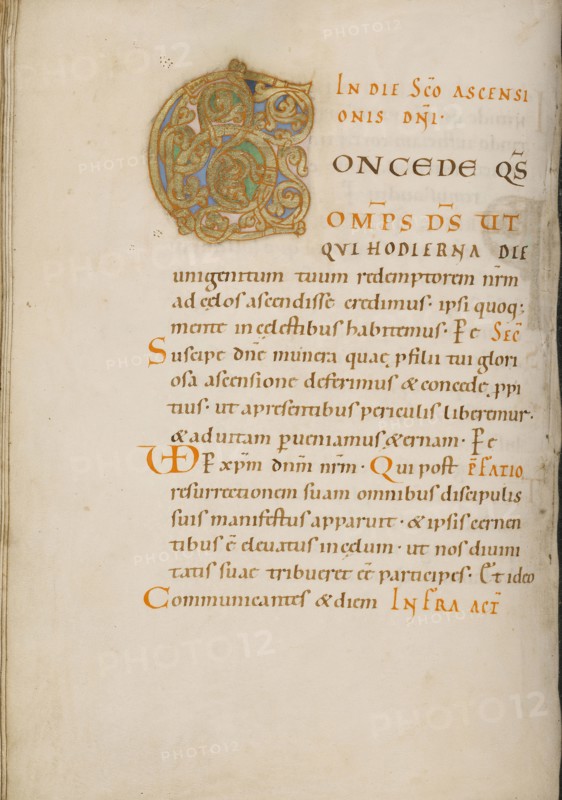 IN DIE SCO ASCENSI
ONIS DNI·
CONCEDE QS
OMPS DS UT
QVI HODIERNA DIE
unigenitum tuum redemptorem nrm
ad cęlos ascendisse credimus· ipsi quoq;
mente in cęlestibus habitemus· P SEC
Suscipe dne munera quae p filii tui glori
osa ascensione deferimus & concede ppi
tius· ut a presentibus periculis liberemur·
& ad uitam perueniamus ęternam· P
VD P xpm dnm nrm· Qui post PFATIO
resurrectionem suam omnibus discipulis
suis manifestus apparuit· & ipsis cernen
tibus ē eleuatus in cęlum· ut nos diuini
tatis suae tribueret eē participes· Et ideo
Communicantes & diem INFRA ACT